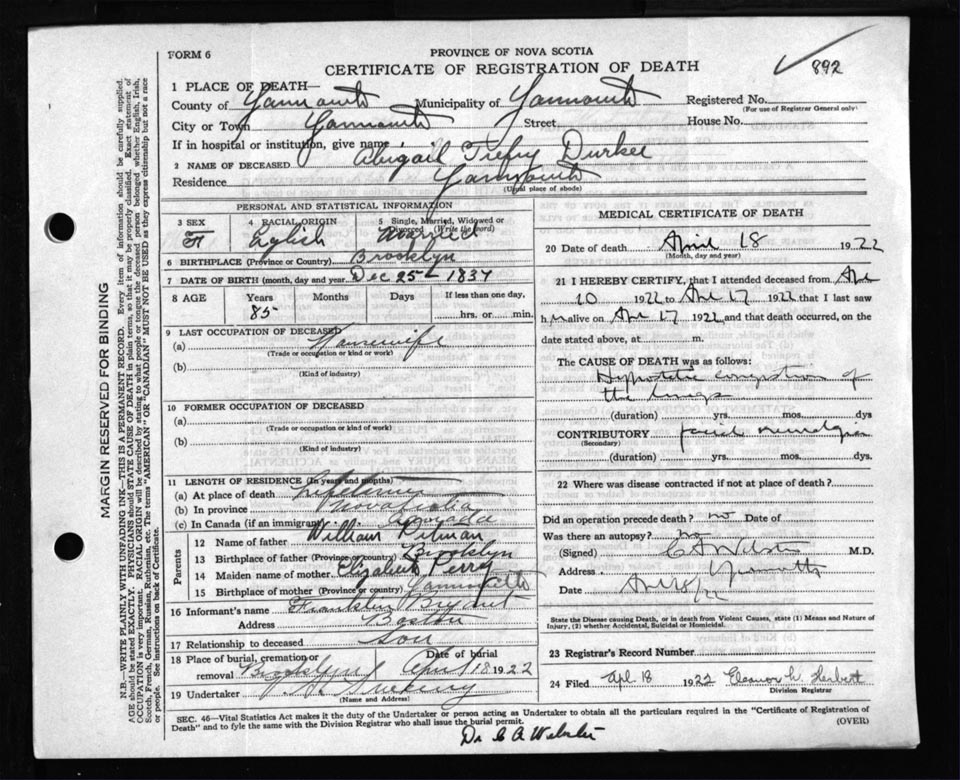 FORM 6
PROVINCE OF NOVA SCOTIA
CERTIFICATE OF REGISTRATION OF DEATH
892
1 PLACE OF DEATH—
County of Yarmouth Municipality of Yarmouth Registered No.
(For use of Registrar General only)
City or Town Yarmouth Street House No.
If in hospital or institution, give name
2 NAME OF DECEASED Abigail Trefry Durkee
Residence Yarmouth
(Usual place of abode)
PERSONAL AND STATISTICAL INFORMATION
3 SEX
4 RACIAL ORIGIN English
5 Single, Married, Widowed or Divorced (Write the word)
6 BIRTHPLACE (Province or Country) Brooklyn
7 DATE OF BIRTH (month, day and year) Dec 25th 1837
8 AGE Years Months Days If less than one day,
85 hrs. or min.
9 LAST OCCUPATION OF DECEASED
(a) Housewife
(Trade or occupation or kind of work)
(b)
(Kind of industry)
10 FORMER OCCUPATION OF DECEASED
(a)
(Trade or occupation or kind of work)
(b)
(Kind of industry)
11 LENGTH OF RESIDENCE (In years and months)
(a) At place of death
(b) In province Nova Scotia
(c) In Canada (if an immigrant)
Parents
12 Name of father William
13 Birthplace of father (Province or country) Brooklyn
14 Maiden name of mother Elizabeth Perry
15 Birthplace of mother (Province or country) Yarmouth
16 Informant's name Franklin
Address Boston
17 Relationship to deceased Son
18 Place of burial, cremation or removal Brooklyn Date of burial April 18 1922
19 Undertaker
(Name and Address)
MEDICAL CERTIFICATE OF DEATH
20 Date of death April 18 1922
(Month, day and year)
21 I HEREBY CERTIFY, that I attended deceased from Apr
10 1922 to Apr 17 1922 that I last saw
h er alive on Apr 17 1922 and that death occurred, on the
date stated above, at m.
The CAUSE OF DEATH was as follows:
Hypostatic congestion of
the lungs
(duration) yrs. mos. dys
CONTRIBUTORY facial neuralgia
(Secondary)
(duration) yrs. mos. dys.
22 Where was disease contracted if not at place of death?
Did an operation precede death? no Date of
Was there an autopsy? no
(Signed) C A Webster M.D.
Address Yarmouth
Date
State the Disease causing Death, or in death from Violent Causes, state (1) Means and Nature of Injury, (2) whether Accidental, Suicidal or Homicidal.
23 Registrar's Record Number
24 Filed Apl 18 1922 Eleanor W. Herbert
Division Registrar
SEC. 46—Vital Statistics Act makes it the duty of the Undertaker or person acting as Undertaker to obtain all the particulars required in the "Certificate of Registration of
Death" and to fyle the same with the Division Registrar who shall issue the burial permit.
(OVER)
Dr C A Webster
MARGIN RESERVED FOR BINDING
N.B.—WRITE PLAINLY WITH UNFADING INK—THIS IS A PERMANENT RECORD. Every item of information should be carefully supplied.
AGE should be stated EXACTLY. PHYSICIANS should STATE CAUSE OF DEATH in plain terms, so that it may be properly classified. Exact statement of
OCCUPATION is very important. RACIAL ORIGIN will be described by stating to what people or tongue the deceased person belonged whether English, Irish,
Scotch, French, German, Russian, Ruthenian, etc. The terms "AMERICAN" OR "CANADIAN" MUST NOT BE USED as they express citizenship but not a race
or people. See instructions on back of Certificate.